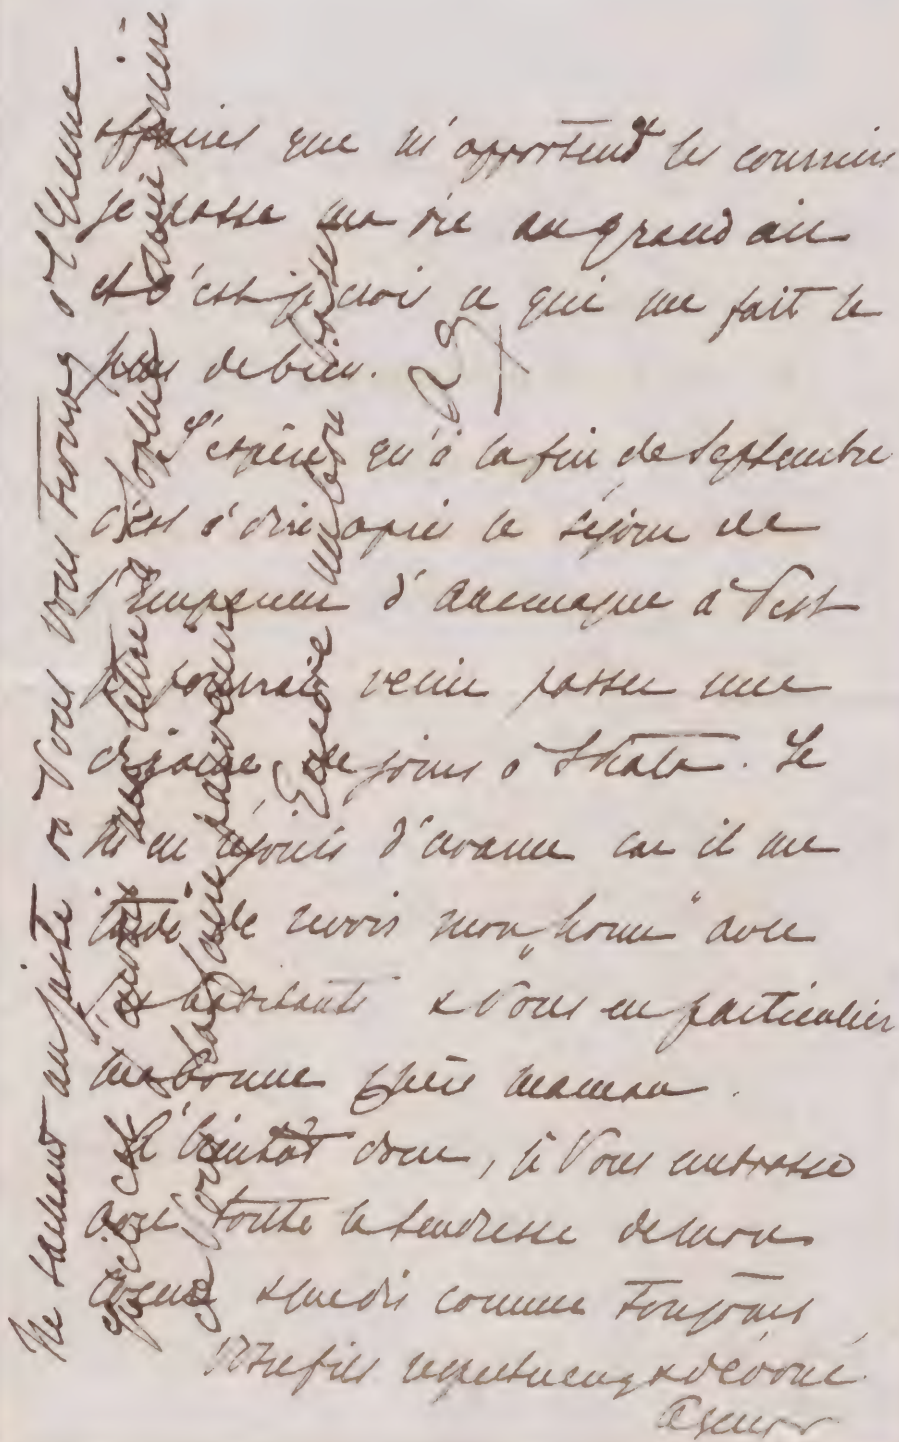 affaires que m'apportent les courriers
je passe ma vie au grand air
et c'est je crois ce qui me fait le
plus de bien.
J'espère qu'à la fin de Septembre
c'est à dire après le séjour de
l'Empereur d'Allemagne à Pest
je pourrais venir passer une
dizaine de jours à Skala. Je
m'en réjouis d'avance car il me
tarde de revoir mon „home" avec
ses habitants & Vous en particulier
ma bonne chère maman.
A bientôt donc, je Vous embrasse
avec toute la tendresse de mon
coeur & me dis comme toujours
Votre fils respectueux & dévoué
Agenor
Ne sachant au juste où Vous Vous trouvez et
j'envoie ma lettre
Vous la faire parvenir
Encore un bon baiser